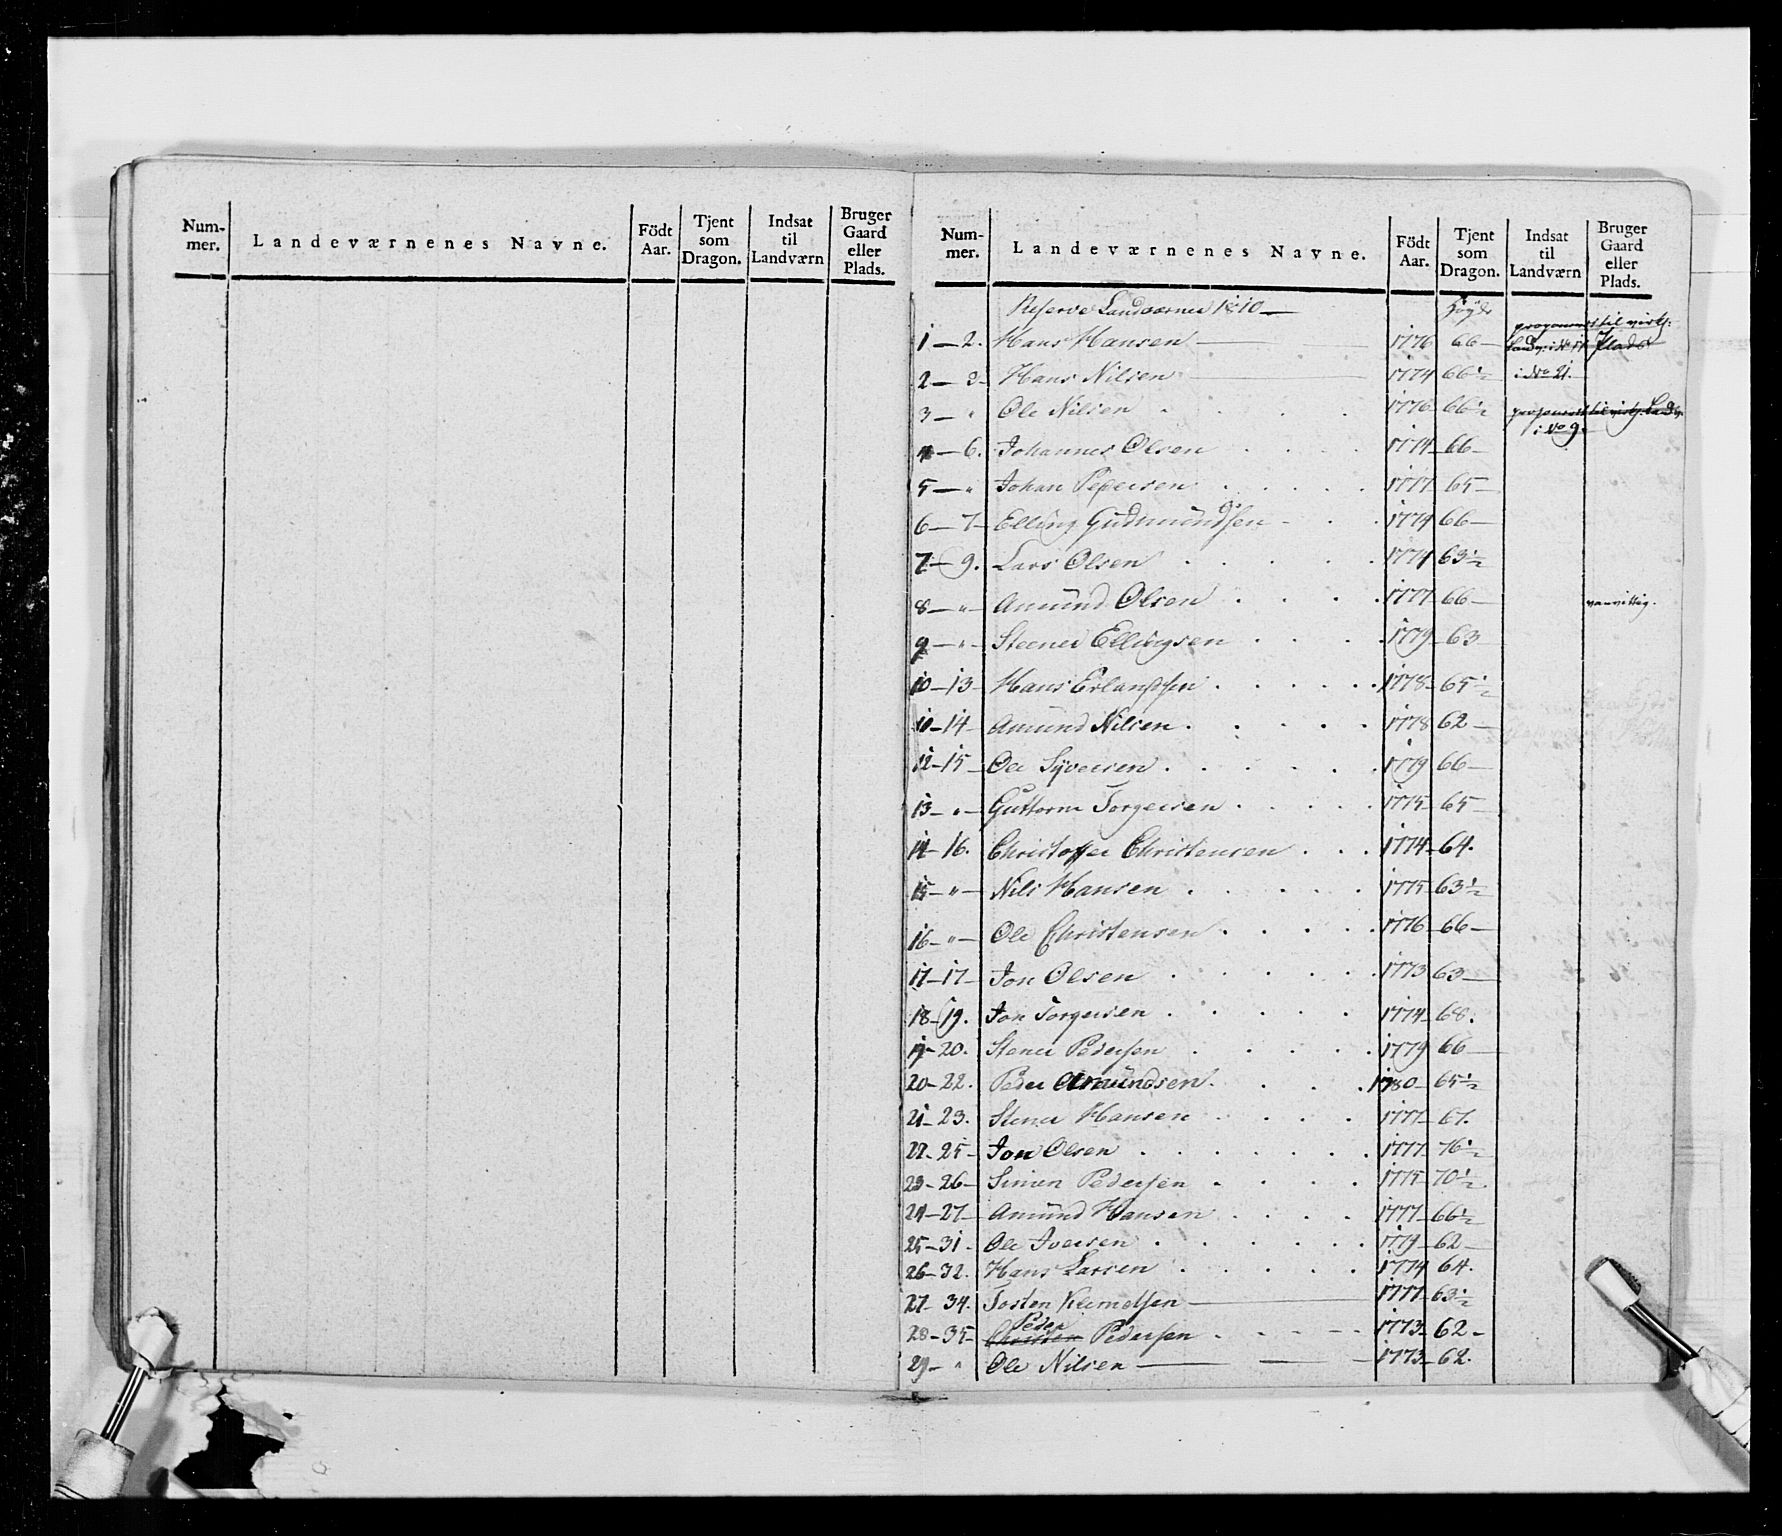 Num-
mer.
Landeværnenes Navne.
Födt
Aar.
Tjent
som
Dragon.
Indsat
til
Landværn
Bruger
Gaard
eller
Plads.
Num-
mer.
Landeværnenes Navne.
Födt
Aar.
Tjent
som
Dragon.
Indsat
til
Landværn
Bruger
Gaard
eller
Plads.
Reserve Landværner 1810 — Höyde
1 — 2. Hans Hansen — 1776 66 — til virk: Landv: i No 17 Plads
2 — 3 — Hans Nilsen — 1774 66½ i No 21.
3 — " Ole Nilsen 1776 66½ til virk: Landv. i No 9.
4 — 6. Johannes Olsen 1774 66 —
5 — " Johan Pedersen 1777 65 —
6 — 7 — Elling Gudmundsen 1774 66 —
7 — 9. Lars Olsen 1774 63½
8 — " — Amund Olsen 1777 66 — vanvittig.
9 — " — Steener Ellingsen 1779 63
10 — 13 — Hans Erlandsen 1778 65½
11 — 14 — Amund Nilsen 1778 62 —
12 — 15 — Ole Syversen 1779 66 —
13 — " — Guttorm Torgersen 1775 65 —
14 — 16. Christoffer Christensen 1774 64.
15 — " — Nils Hansen 1775 63½
16 — " — Ole Christensen 1776 66 —
17 — 17 — Jon Olsen 1773 63 —
18 — 19. Jon Torgersen 1774 68.
19 — 20. Stener Pedersen 1779 66 —
20 — 22. Peder Amundsen 1780 65½
21 — 23. Stener Hansen 1777 67.
22 — 25 — Jon Olsen 1777 76½
23 — 26 — Simen Pedersen 1775 70½
24 — 27 — Amund Hansen 1777 66½
25 — 31 — Ole Iversen 1779 62 —
26 — 32. Hans Larsen 1774 64.
27 — 34. Tosten Klemetsen — 1777 63½
28 — 35 — Christen Peder Pedersen 1773 62 —
29 — " Ole Nilsen — 1773 62.